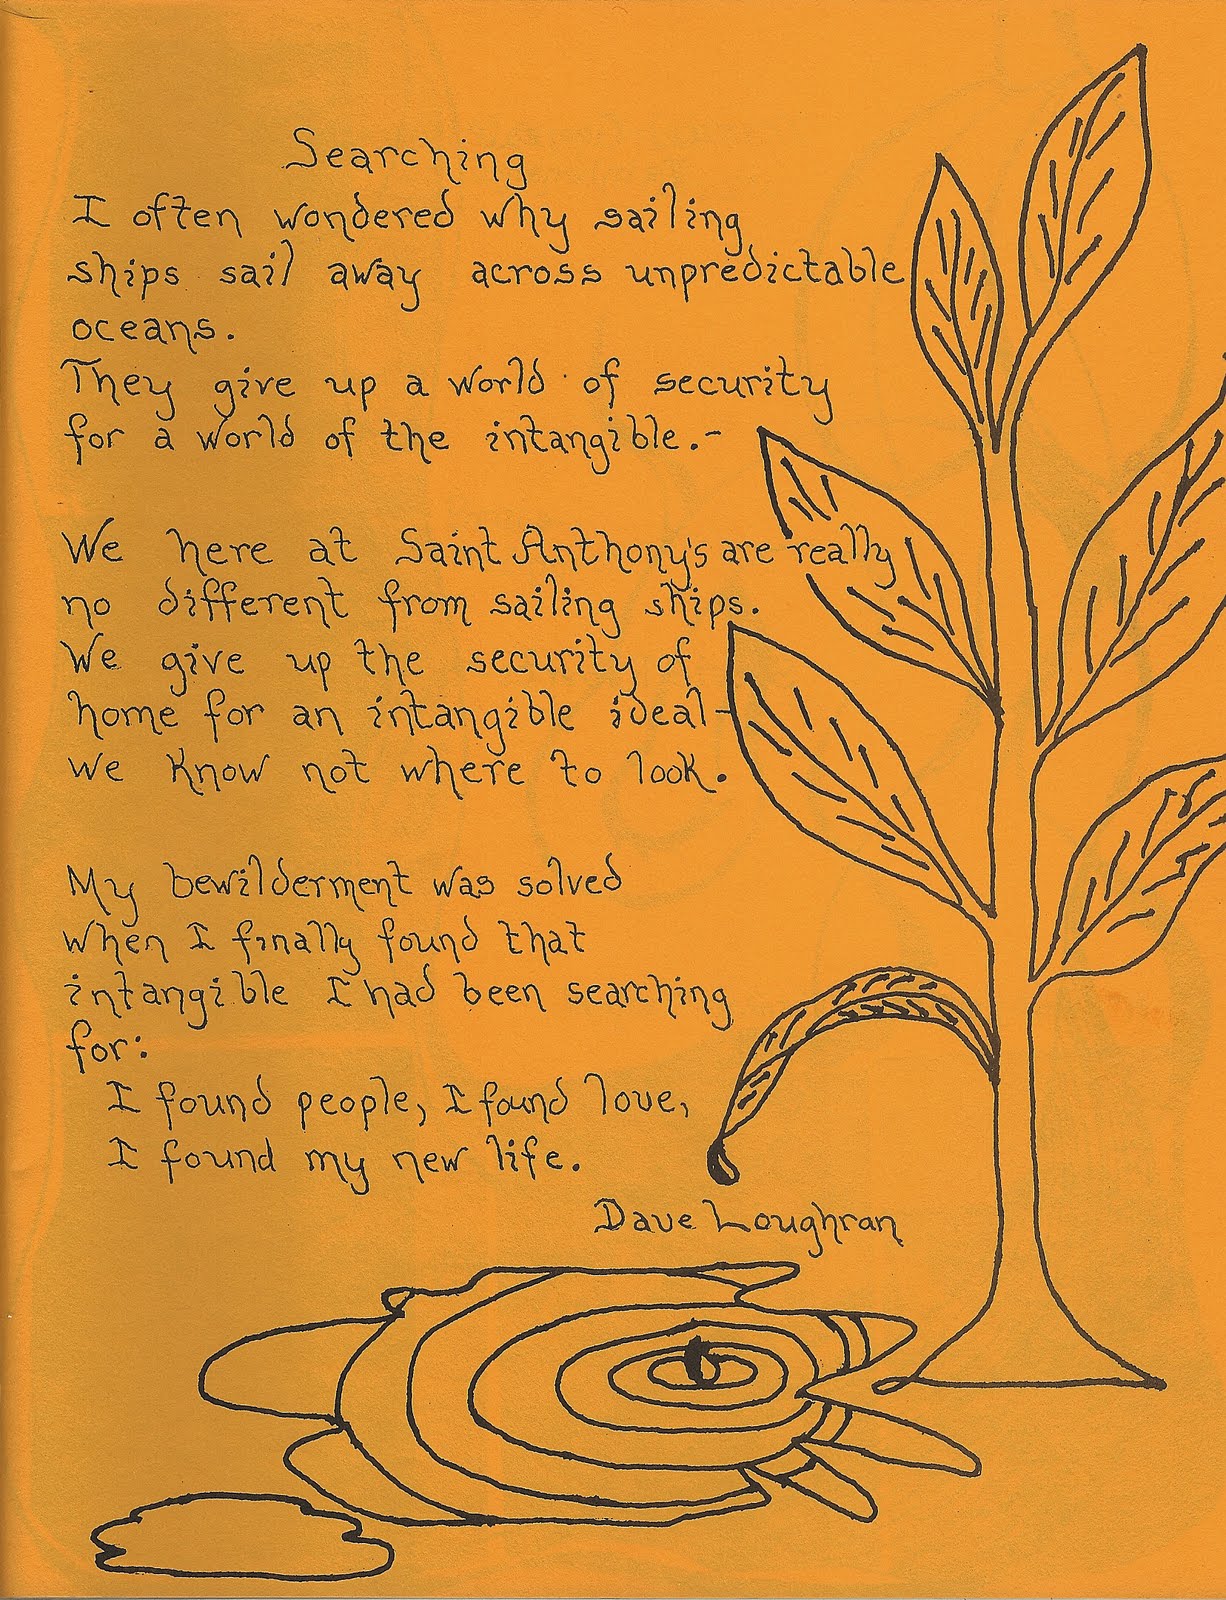 Searching
I often wondered why sailing
ships sail away across unpredictable
oceans.
They give up a world of security
for a world of the intangible.-
We here at Saint Anthony's are really
no different from sailing ships.
We give up the security of
home for an intangible ideal-
we know not where to look.
My bewilderment was solved
when I finally found that
intangible I had been searching
for:
I found people, I found love,
I found my new life.
Dave Loughran